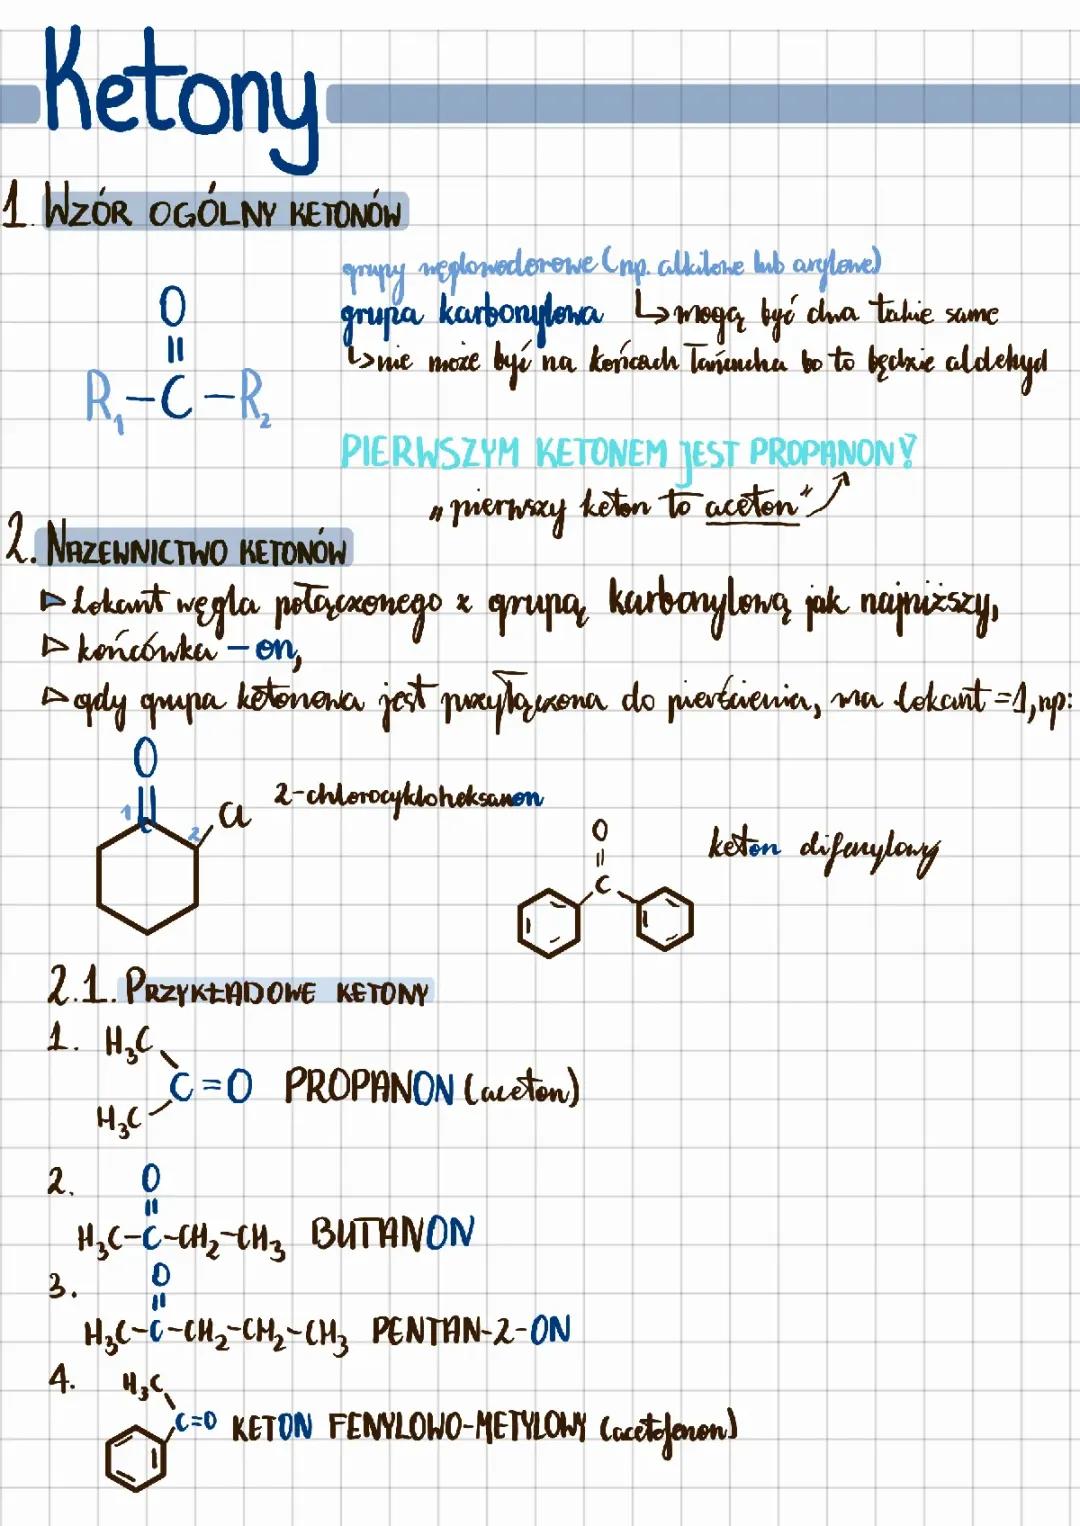 Ketony
1. WZÓR OGÓLNY KETONÓW
grupy węglowodorowe (np. alkilowe lub arylowe)
grupa karbonylowa ↳ mogą być dwa takie same
↳ nie może być na końcach łańcucha bo to będzie aldehyd
O
||
R₁-C-R₂
PIERWSZYM KETONEM JEST PROPANON!
„pierwszy keton to aceton"
2. NAZEWNICTWO KETONÓW
▷ Lokant węgla połączonego z grupą karbonylową jak najniższy,
▷ końcówka -on,
▷ gdy grupa ketonowa jest przyłączona do pierścienia, ma lokant =1, np:
O
1
2
Cl
2-chlorocykloheksanon
O
||
C
keton difenylowy
2.1. PRZYKŁADOWE KETONY
1. H₃C
C=O PROPANON (aceton)
H₃C
2. O
||
H₃C-C-CH₂-CH₃ BUTANON
3. O
||
H₃C-C-CH₂-CH₂-CH₃ PENTAN-2-ON
4. H₃C
C=O KETON FENYLOWO-METYLOWY (acetofenon)